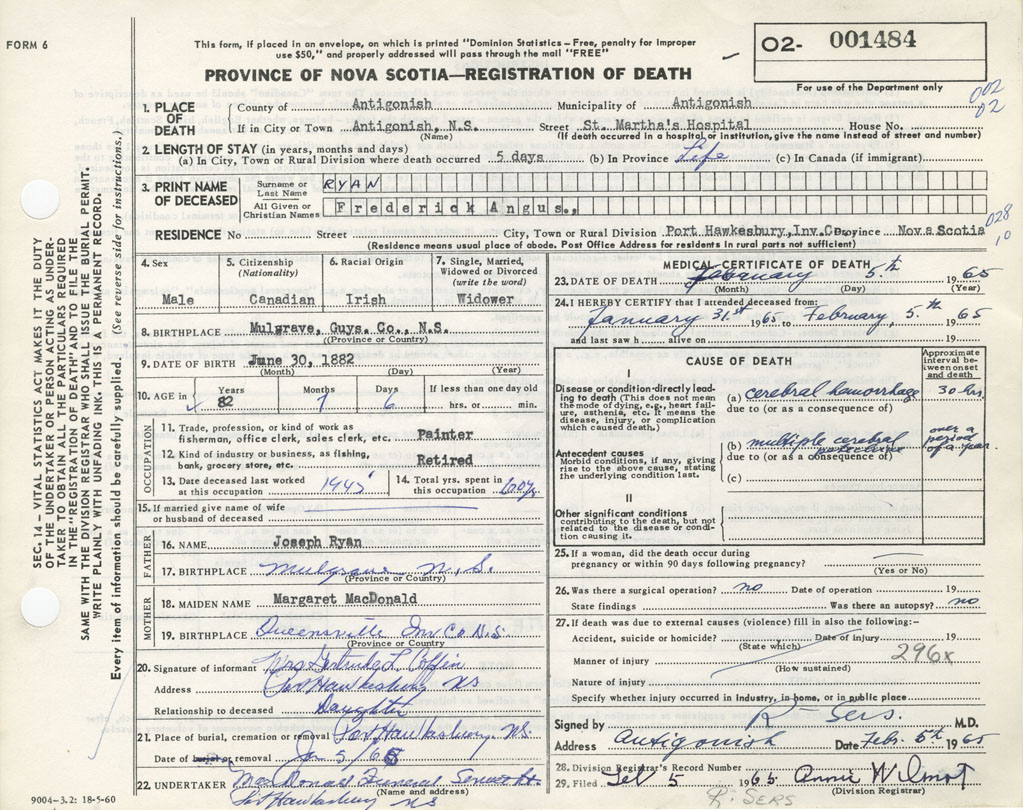 FORM 6
This form, if placed in an envelope, on which is printed "Dominion Statistics – Free, penalty for improper
use $50," and properly addressed will pass through the mail "FREE"
02- 001484
For use of the Department only
PROVINCE OF NOVA SCOTIA—REGISTRATION OF DEATH
002
02
1. PLACE OF DEATH
County of Antigonish Municipality of Antigonish
If in City or Town Antigonish, N.S. Street St. Martha's Hospital House No.
(Name) (If death occurred in a hospital or institution, give the name instead of street and number)
2. LENGTH OF STAY (in years, months and days)
(a) In City, Town or Rural Division where death occurred 5 days (b) In Province Life (c) In Canada (if immigrant)
3. PRINT NAME OF DECEASED
Surname or Last Name RYAN
All Given or Christian Names Frederick Angus.,
028
10
RESIDENCE No Street City, Town or Rural Division Port Hawkesbury, Inv. Co. Province Nova Scotia
(Residence means usual place of abode. Post Office Address for residents in rural parts not sufficient)
4. Sex Male
5. Citizenship (Nationality) Canadian
6. Racial Origin Irish
7. Single, Married, Widowed or Divorced (write the word) Widower
8. BIRTHPLACE Mulgrave, Guys. Co., N.S.
(Province or Country)
9. DATE OF BIRTH June 30, 1882
(Month) (Day) (Year)
10. AGE in Years 82 Months 7 Days 6 If less than one day old hrs. or min.
OCCUPATION
11. Trade, profession, or kind of work as fisherman, office clerk, sales clerk, etc. Painter
12. Kind of industry or business, as fishing, bank, grocery store, etc. Retired
13. Date deceased last worked at this occupation 1945
14. Total yrs. spent in this occupation
15. If married give name of wife or husband of deceased
FATHER
16. NAME Joseph Ryan
17. BIRTHPLACE Mulgrave N.S.
(Province or Country)
MOTHER
18. MAIDEN NAME Margaret MacDonald
19. BIRTHPLACE Queensville Inv Co N.S.
(Province or Country)
20. Signature of informant Mrs Gertrude L Coffin
Address Port Hawkesbury NS
Relationship to deceased Daughter
21. Place of burial, cremation or removal Port Hawkesbury N.S.
Date of burial or removal 5/65
22. UNDERTAKER MacDonald Funeral Service
(Name and address)
Port Hawkesbury NS
9004—3.2: 18-5-60
MEDICAL CERTIFICATE OF DEATH
23. DATE OF DEATH February 5.th 1965
(Month) (Day) (Year)
24. I HEREBY CERTIFY that I attended deceased from:
January 31st 1965 to February, 5.th 1965
and last saw h alive on 19
CAUSE OF DEATH
Approximate interval between onset and death
I
Disease or condition directly leading to death (This does not mean the mode of dying, e.g., heart failure, asthenia, etc. It means the disease, injury, or complication which caused death.)
(a) cerebral hemorrhage 30 hrs.
due to (or as a consequence of)
Antecedent causes
Morbid conditions, if any, giving rise to the above cause, stating the underlying condition last.
(b) multiple cerebral over a period of a year
due to (or as a consequence of)
(c)
II
Other significant conditions
contributing to the death, but not related to the disease or condition causing it.
25. If a woman, did the death occur during pregnancy or within 90 days following pregnancy?
(Yes or No)
26. Was there a surgical operation? no Date of operation 19
State findings Was there an autopsy? no
27. If death was due to external causes (violence) fill in also the following:—
Accident, suicide or homicide? Date of injury 19
(State which)
Manner of injury 296x
(How sustained)
Nature of injury
Specify whether injury occurred in industry, in home, or in public place
Signed by R Sers. M.D.
Address Antigonish Date Feb. 5th 1965
28. Division Registrar's Record Number
29. Filed Feb 5 1965 Annie Wilmot
(Division Registrar)
R. SERS
SEC. 14 – VITAL STATISTICS ACT MAKES IT THE DUTY
OF THE UNDERTAKER OR PERSON ACTING AS UNDER-
TAKER TO OBTAIN ALL THE PARTICULARS REQUIRED
IN THE "REGISTRATION OF DEATH" AND TO FILE THE
SAME WITH THE DIVISION REGISTRAR WHO SHALL ISSUE THE BURIAL PERMIT.
WRITE PLAINLY WITH UNFADING INK. THIS IS A PERMANENT RECORD.
Every item of information should be carefully supplied. (See reverse side for instructions.)